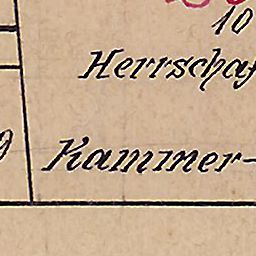 10
Herrschaf
Kammer-